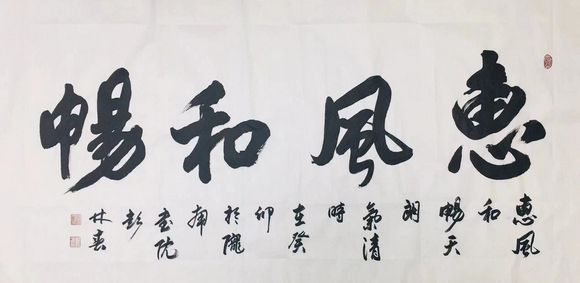 惠風和暢
惠風
和
暢天
朗
氣清
時
在癸
卯
於隴
南
院
彭
林